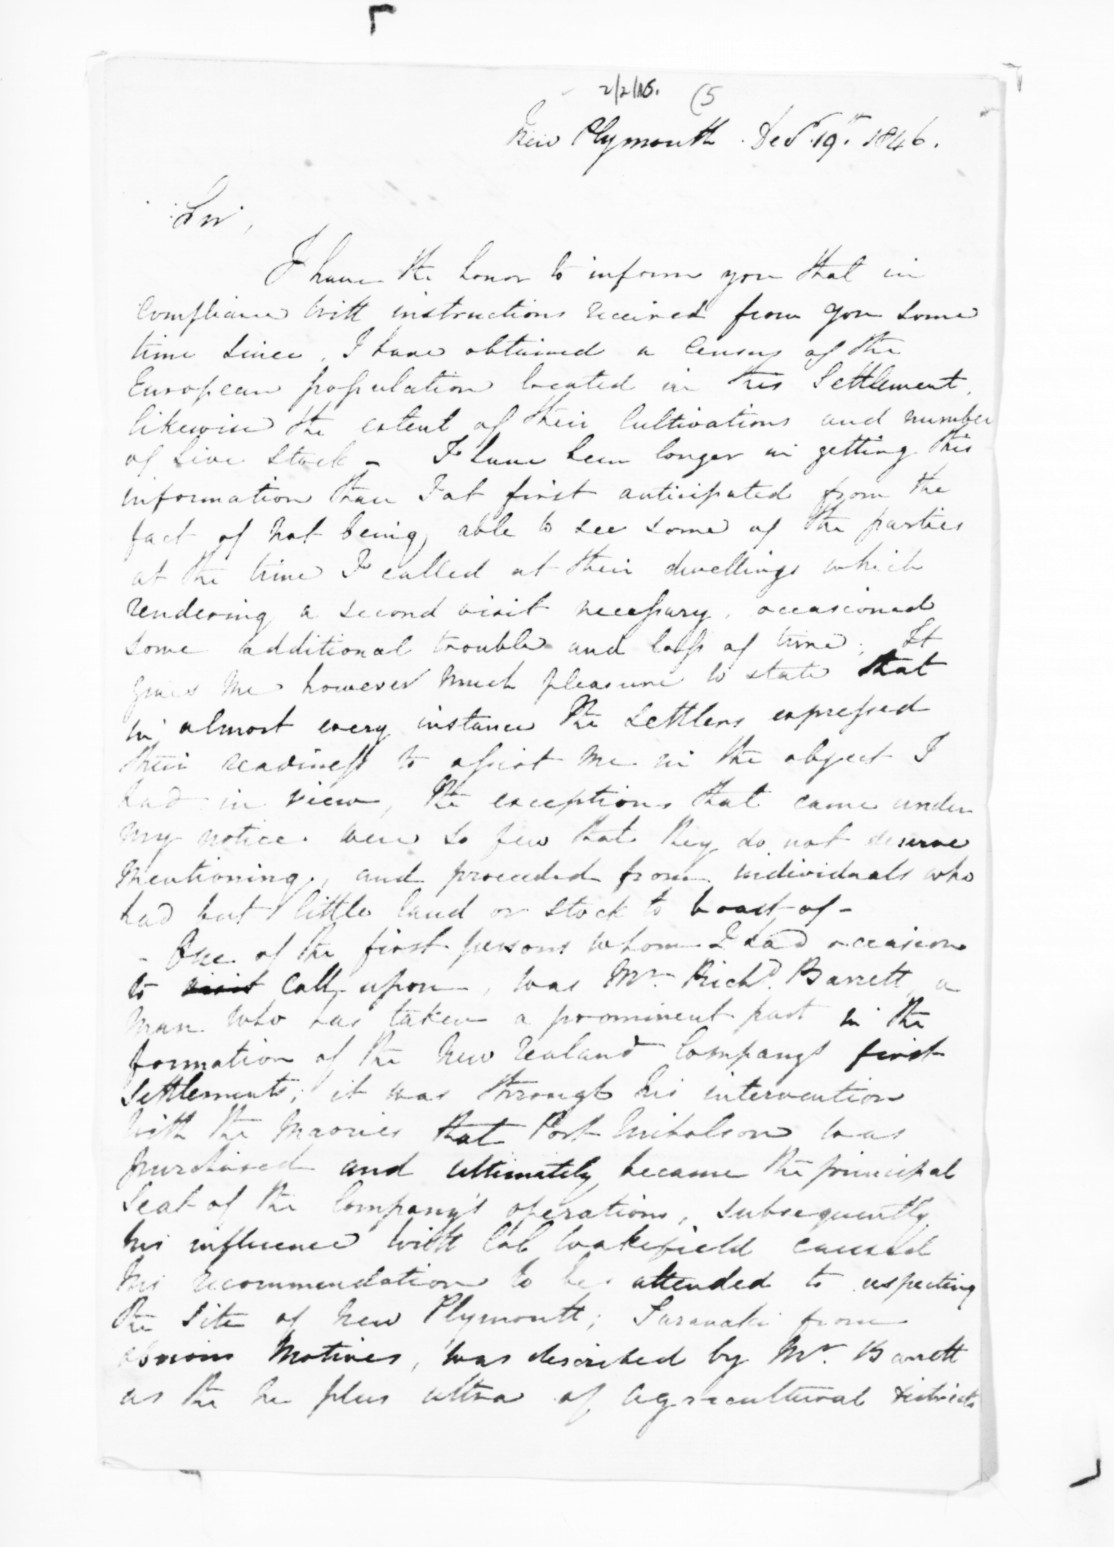 2/2/15. (5
New Plymouth. Decr. 19th. 1846.
Sir,
I have the honor to inform you that in
compliance with instructions received from you some
time since, I have obtained a census of the
European population located in this Settlement,
likewise the extent of their Cultivations and number
of Live Stock – I have been longer in getting this
information than I at first anticipated from the
fact of not being able to see some of the parties
at the time I called at their dwellings which
rendering a second visit necessary, occasioned
some additional trouble and loss of time; It
gives me however much pleasure to state that
in almost every instance the settlers expressed
their readiness to assist me in the object I
had in view, the exceptions that came under
my notice were so few that they do not deserve
mentioning, and proceeded from individuals who
had but little land or stock to boast of –
– One of the first persons whom I had occasion
to visit call upon, was Mr. Richd. Barrett, a
man who has taken a prominent part in the
formation of the New Zealand Company's first
Settlements; it was through his intervention
with the Maories that Port Nicholson was
purchased and ultimately became the principal
Seat of the Company's operations, subsequently
his influence with Col Wakefield caused
his recommendation to be attended to respecting
the Site of New Plymouth; Taranaki from
obvious Motives, was described by Mr. Barrett
as the ne plus ultra of agricultural districts